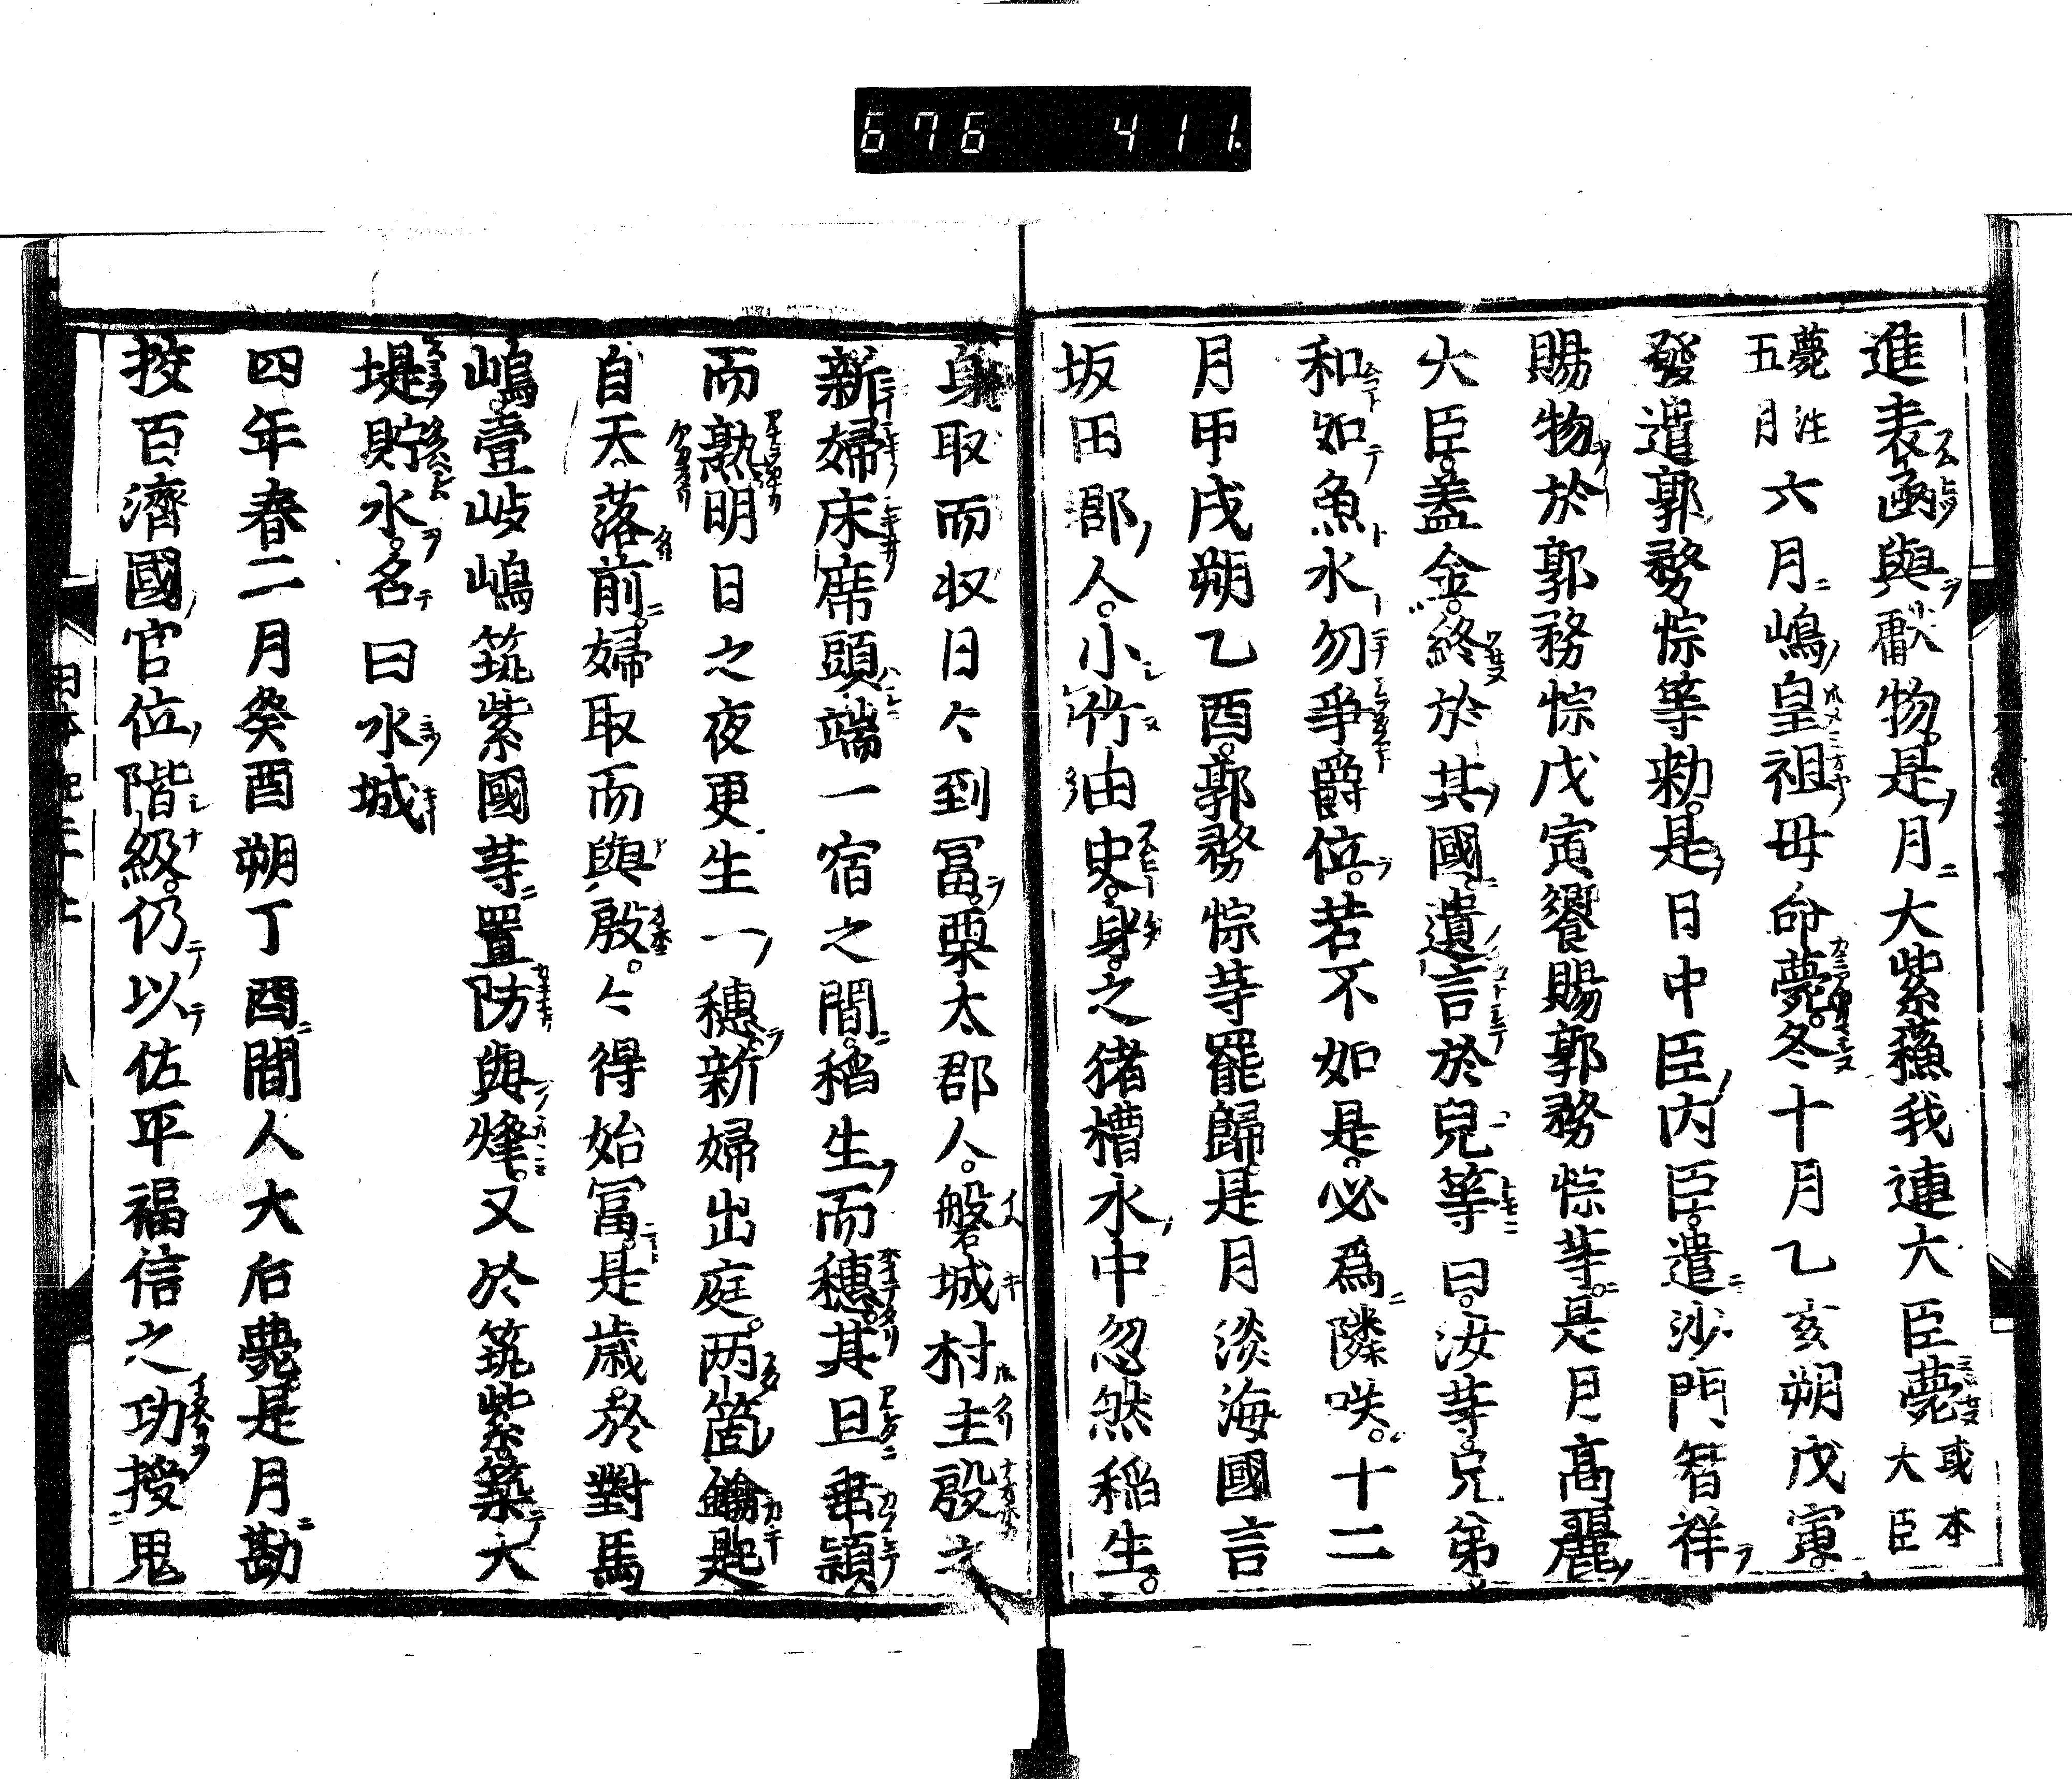 676 411.
進表函與献物是月大紫蘓我連大臣薨或本大臣
薨注五月六月嶋皇祖母命薨冬十月乙亥朔戊寅
發遣郭務悰等勅是日中臣内臣遣沙門智祥
賜物於郭務悰戊寅饗賜郭務悰等是月高麗
大臣盖金終於其國遺言於兒等曰汝等兄弟
和如魚水勿爭爵位若不如是必爲隣咲十二
月甲戌朔乙酉郭務悰等罷歸是月淡海國言
坂田郡人小竹田史身之猪槽水中忽然稻生
身取而収日々到冨栗太郡人磐城村主殷之
新婦床席頭端一宿之間稻生而穗其旦垂頴
而熟明日之夜更生一穗新婦出庭两箇鑰匙
自天落前婦取而與殷々得始冨是歳於對馬
嶋壹岐嶋筑紫國等置防與烽又於筑紫築大
堤貯水名曰水城
四年春二月癸酉朔丁酉間人大后薨是月勘
挍百濟國官位階級仍以佐平福信之功授鬼